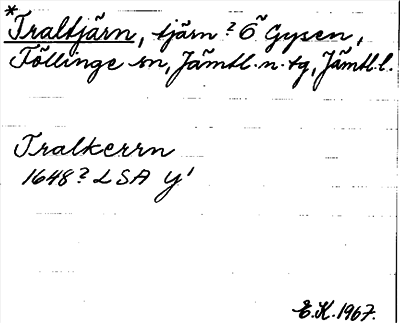 *Traltjärn, tjärn? Ö Gysen,
Föllinge sn, Jämtl. n. tg, Jämtl. l.
Tralkerrn
1648? LSA Y1
E.K. 1967.